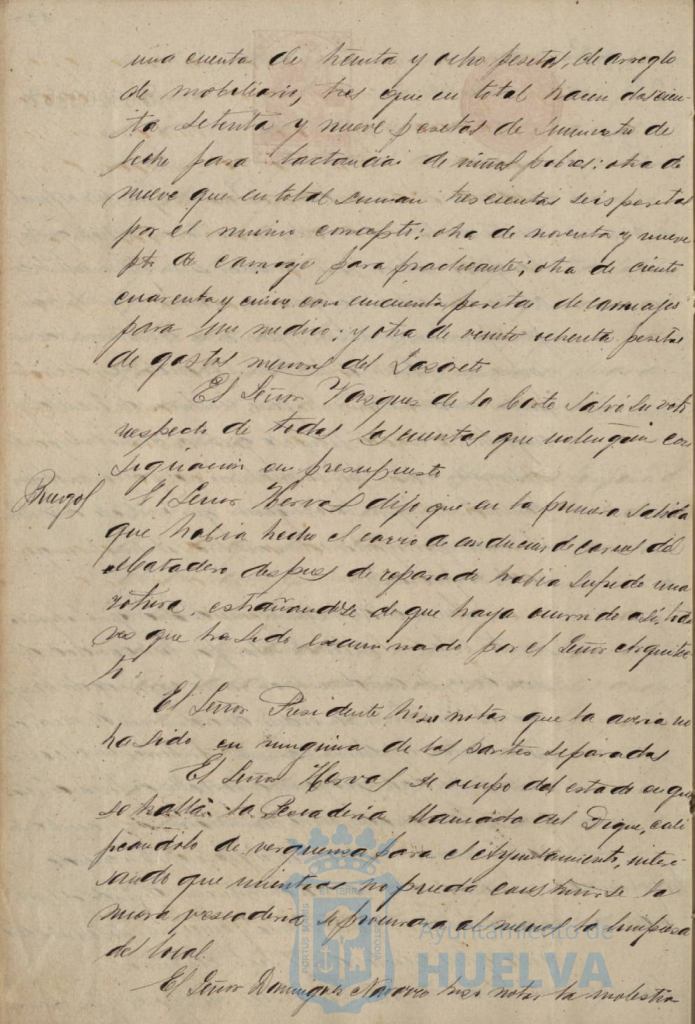 una cuenta de treinta y ocho pesetas, de arreglo
de mobiliario, tres que en total hacen doscien-
tas setenta y nueve pesetas de suministro de
leche para lactancia de niños pobres: otra de
nueve que en total suman trescientas seis pesetas
por el mismo concepto; otra de noventa y nueve
pts. de carruaje para practicante; otra de ciento
cuarenta y cinco con cincuenta pesetas de carruajes
para un medico; y otra de veinte ochenta pesetas
de gastos menores del Lazareto
El Señor Vazquez de la Corte salvó su voto
respecto de todas las cuentas que no tengan con
signacion en presupuesto
Ruegos
El Señor Hervas dijo que en la primera salida
que habia hecho el carro de conduccion de carnes del
Matadero despues de reparado habia sufrido una
rotura, estrañandose de que haya ocurrido asi, toda
vez que ha sido examinado por el Señor Arquitec-
to.
El Señor Presidente hizo notar que la averia no
ha sido en ninguna de las partes reparadas
El Señor Hervas se ocupó del estado en que
se halla la Pescaderia llamada del Dique, cali
ficandolo de verguenza para el Ayuntamiento, intere-
sando que mientras no pueda construirse la
nueva pescaderia se procurara al menos la limpieza
del local.
El Señor Dominguez Navarro hizo notar la molestia
Ayuntamiento de
HUELVA